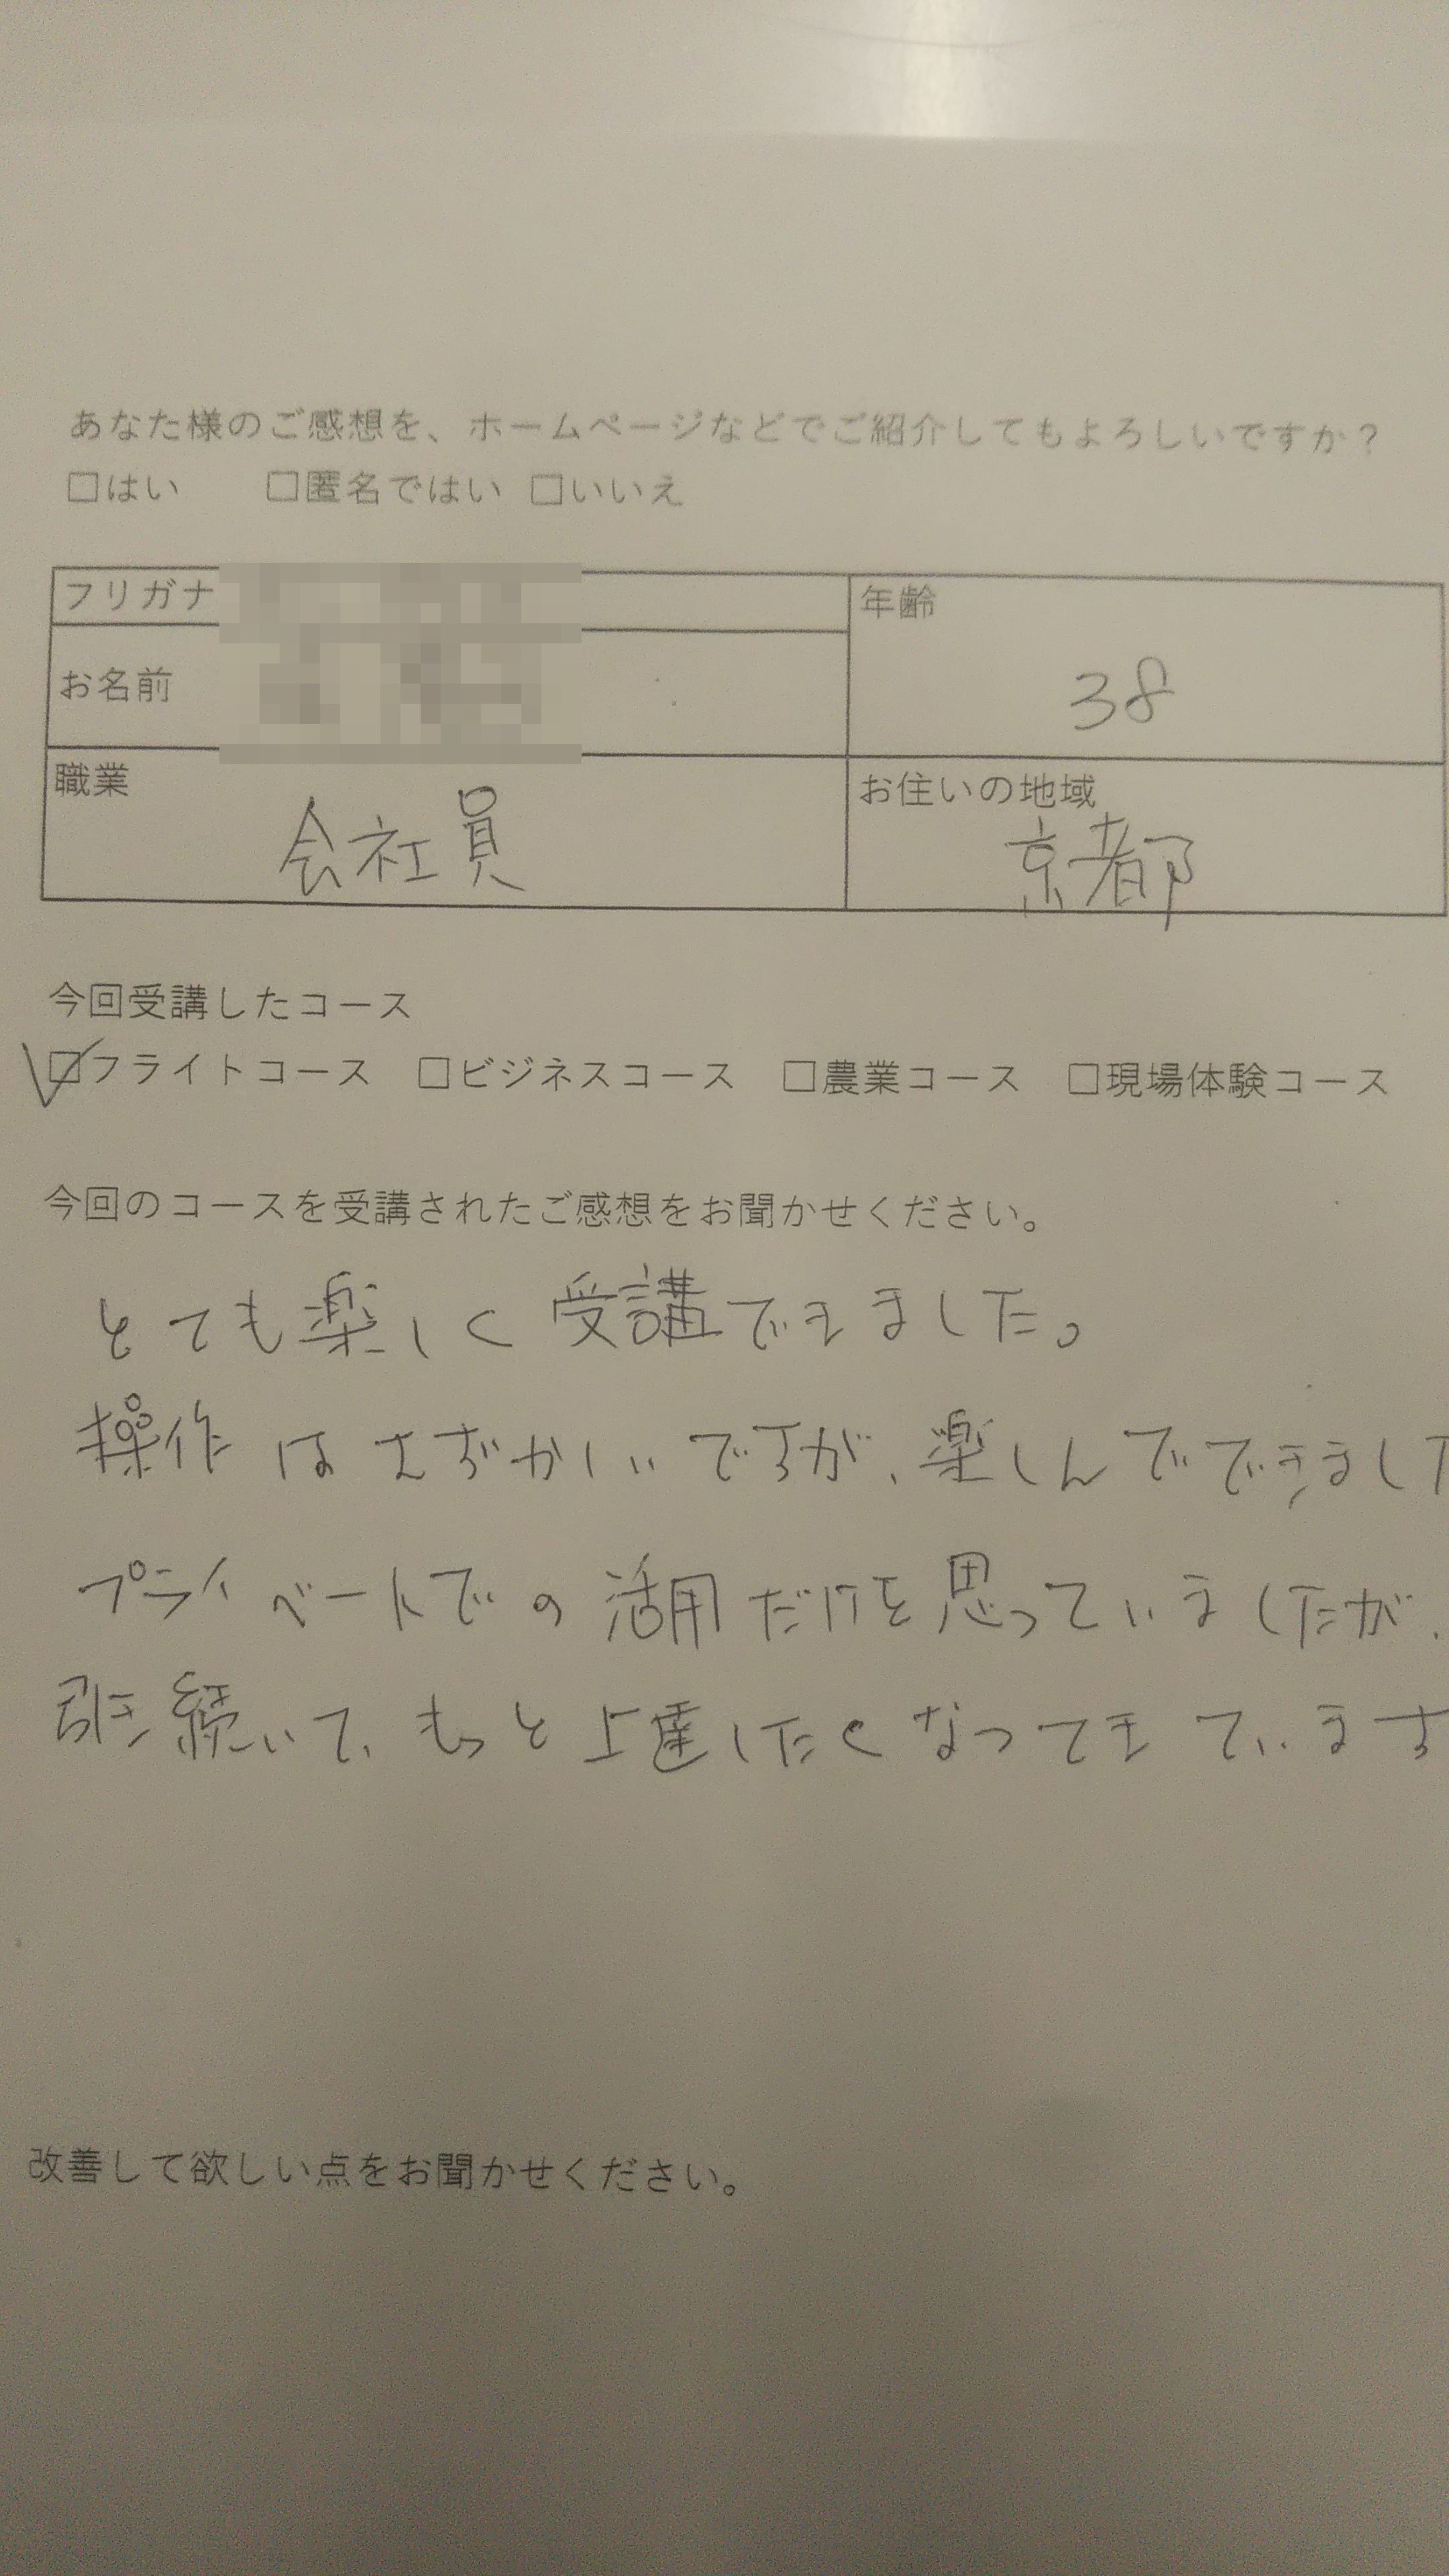 あなた様のご感想を、ホームページなどでご紹介してもよろしいですか？
□はい □匿名ではい □いいえ
フリガナ
年齢
お名前
38
職業
お住いの地域
会社員
京都
今回受講したコース
☑フライトコース □ビジネスコース □農業コース □現場体験コース
今回のコースを受講されたご感想をお聞かせください。
とても楽しく受講できました。
操作はむずかしいですが、楽しんでできました
プライベートでの活用だけを思っていましたが、
引き続いて、もっと上達したくなってきています
改善して欲しい点をお聞かせください。